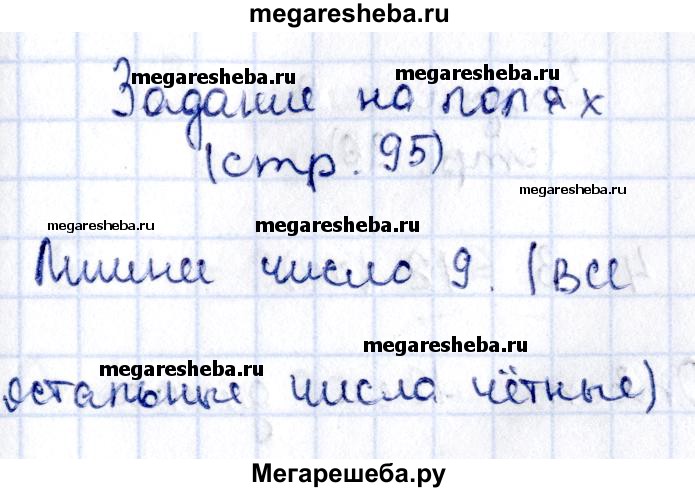 megaresheba.ru
megaresheba.ru megaresheba.ru
Задание на полях
(стр. 95)
megaresheba.ru
megaresheba.ru megaresheba.ru
Лишнее число 9. (все
megaresheba.ru megaresheba.ru
остальные числа чётные)
Мегарешеба.ру